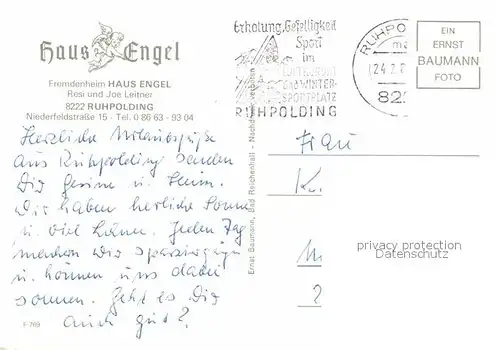 Haus Engel
Fremdenheim HAUS ENGEL
Rosi und Joe Leitner
8222 RUHPOLDING
Niederfeldstraße 15 - Tel. 0 86 63 - 93 04
Herzliche Urlaubsgrüße
aus Ruhpolding senden
Dir Gesine u. Heim.
Wir haben herrliche Sonne
u. viel
Jeden Tag
machen wir Spaziergänge
u. können uns dabei
sonnen. Geht es Dir
auch gut?
F 769
Ernst Baumann, Bad Reichenhall - Nachdruck verboten
Erholung, Geselligkeit
Sport
im
LUFTKURORT
UND WINTER-
SPORTPLATZ
RUHPOLDING
RUHPO
24.2.
822
EIN
ERNST
BAUMANN
FOTO
Frau
K
privacy protection
Datenschutz